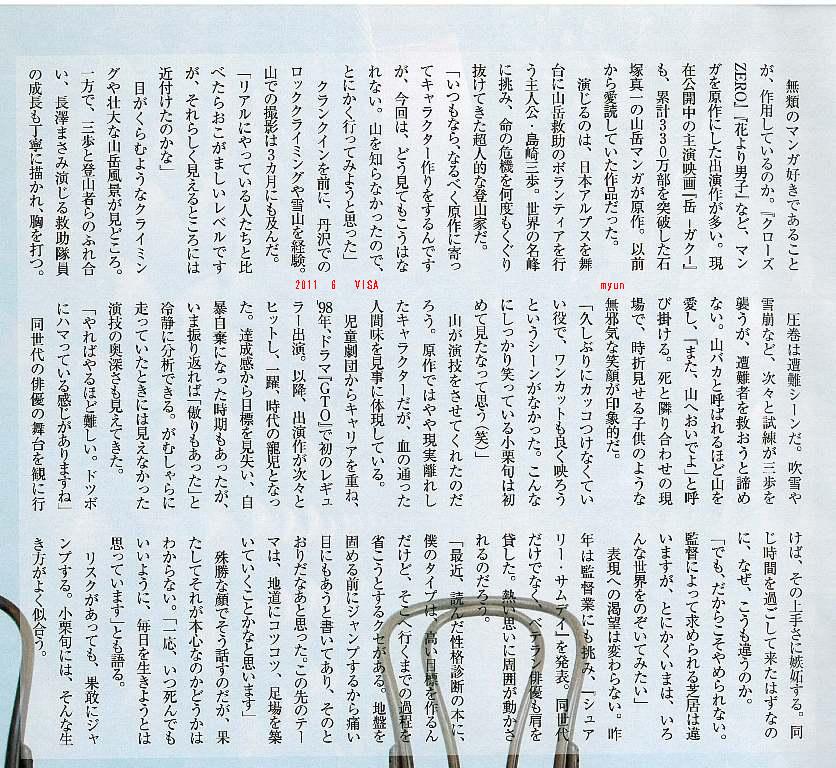 無類のマンガ好きであること
が、作用しているのか。『クローズ
ZERO』『花より男子』など、マン
ガを原作にした出演作が多い。現
在公開中の主演映画『岳 -ガク-』
も、累計330万部を突破した石
塚真一の山岳マンガが原作。以前
から愛読していた作品だった。
演じるのは、日本アルプスを舞
台に山岳救助のボランティアを行
う主人公・島崎三歩。世界の名峰
に挑み、命の危機を何度もくぐり
抜けてきた超人的な登山家だ。
「いつもなら、なるべく原作に寄っ
てキャラクター作りをするんです
が、今回は、どう見てもこうはな
れない。山を知らなかったので、
とにかく行ってみようと思った」
クランクインを前に、丹沢での
ロッククライミングや雪山を経験。
山での撮影は3カ月にも及んだ。
「リアルにやっている人たちと比
べたらおこがましいレベルです
が、それらしく見えるところには
近付けたのかな」
目がくらむようなクライミン
グや壮大な山岳風景が見どころ。
一方で、三歩と登山者らのふれ合
い、長澤まさみ演じる救助隊員
の成長も丁寧に描かれ、胸を打つ。
2011 6 VISA
myun
圧巻は遭難シーンだ。吹雪や
雪崩など、次々と試練が三歩を
襲うが、遭難者を救おうと諦め
ない。山バカと呼ばれるほど山を
愛し、「また、山へおいでよ」と呼
び掛ける。死と隣り合わせの現
場で、時折見せる子供のような
無邪気な笑顔が印象的だ。
「久しぶりにカッコつけなくてい
い役で、ワンカットも良く映ろう
というシーンがなかった。こんな
にしっかり笑っている小栗旬は初
めて見たなって思う（笑）」
山が演技をさせてくれたのだ
ろう。原作ではやや現実離れし
たキャラクターだが、血の通った
人間味を見事に体現している。
児童劇団からキャリアを重ね、
'98年、ドラマ『GTO』で初のレギュ
ラー出演。以降、出演作が次々と
ヒットし、一躍、時代の寵児となっ
た。達成感から目標を見失い、自
暴自棄になった時期もあったが、
いま振り返れば「傲りもあった」と
冷静に分析できる。がむしゃらに
走っていたときには見えなかった
演技の奥深さも見えてきた。
「やればやるほど難しい。ドツボ
にハマっている感じがありますね」
同世代の俳優の舞台を観に行
けば、その上手さに嫉妬する。同
じ時間を過ごして来たはずなの
に、なぜ、こうも違うのか。
「でも、だからこそやめられない。
監督によって求められる芝居は違
いますが、とにかくいまは、いろ
んな世界をのぞいてみたい」
表現への渇望は変わらない。昨
年は監督業にも挑み、『シュア
リー・サムデイ』を発表。同世代
だけでなく、ベテラン俳優も肩を
貸した。熱い思いに周囲が動かさ
れるのだろう。
「最近、読んだ性格診断の本に、
僕のタイプは、高い目標を作るん
だけど、そこへ行くまでの過程を
省こうとするクセがある。地盤を
固める前にジャンプするから痛い
目にもあうと書いてあり、そのと
おりだなあと思った。この先のテー
マは、地道にコツコツ、足場を築
いていくことかなと思います」
殊勝な顔でそう話すのだが、果
たしてそれが本心なのかどうかは
わからない。「一応、いつ死んでも
いいように、毎日を生きようとは
思っています」とも語る。
リスクがあっても、果敢にジャ
ンプする。小栗旬には、そんな生
き方がよく似合う。